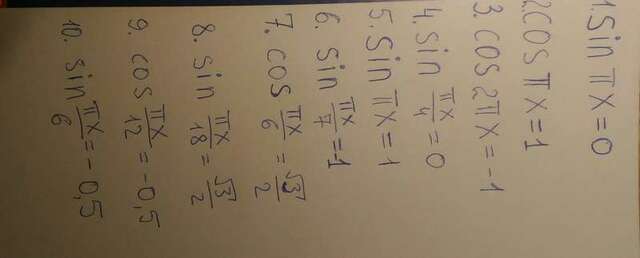 1. sin πx=0
2. cos πx=1
3. cos 2πx=-1
4. sin πx/4=0
5. sin πx=1
6. sin πx/7=-1
7. cos πx/6=√3/2
8. sin πx/18=√3/2
9. cos πx/12=-0,5
10. sin πx/6=-0,5